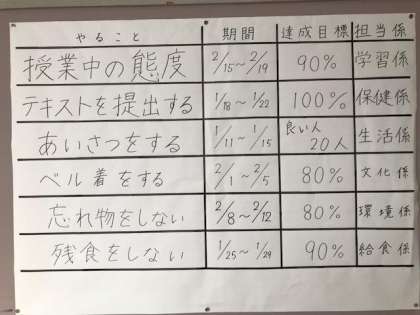 やること 期間 達成目標 担当係
授業中の態度 2/15~2/19 90% 学習係
テキストを提出する 1/18~1/22 100% 保健係
あいさつをする 1/11~1/15 良い人 20人 生活係
ベル着をする 2/1~2/5 80% 文化係
忘れ物をしない 2/8~2/12 80% 環境係
残食をしない 1/25~1/29 90% 給食係